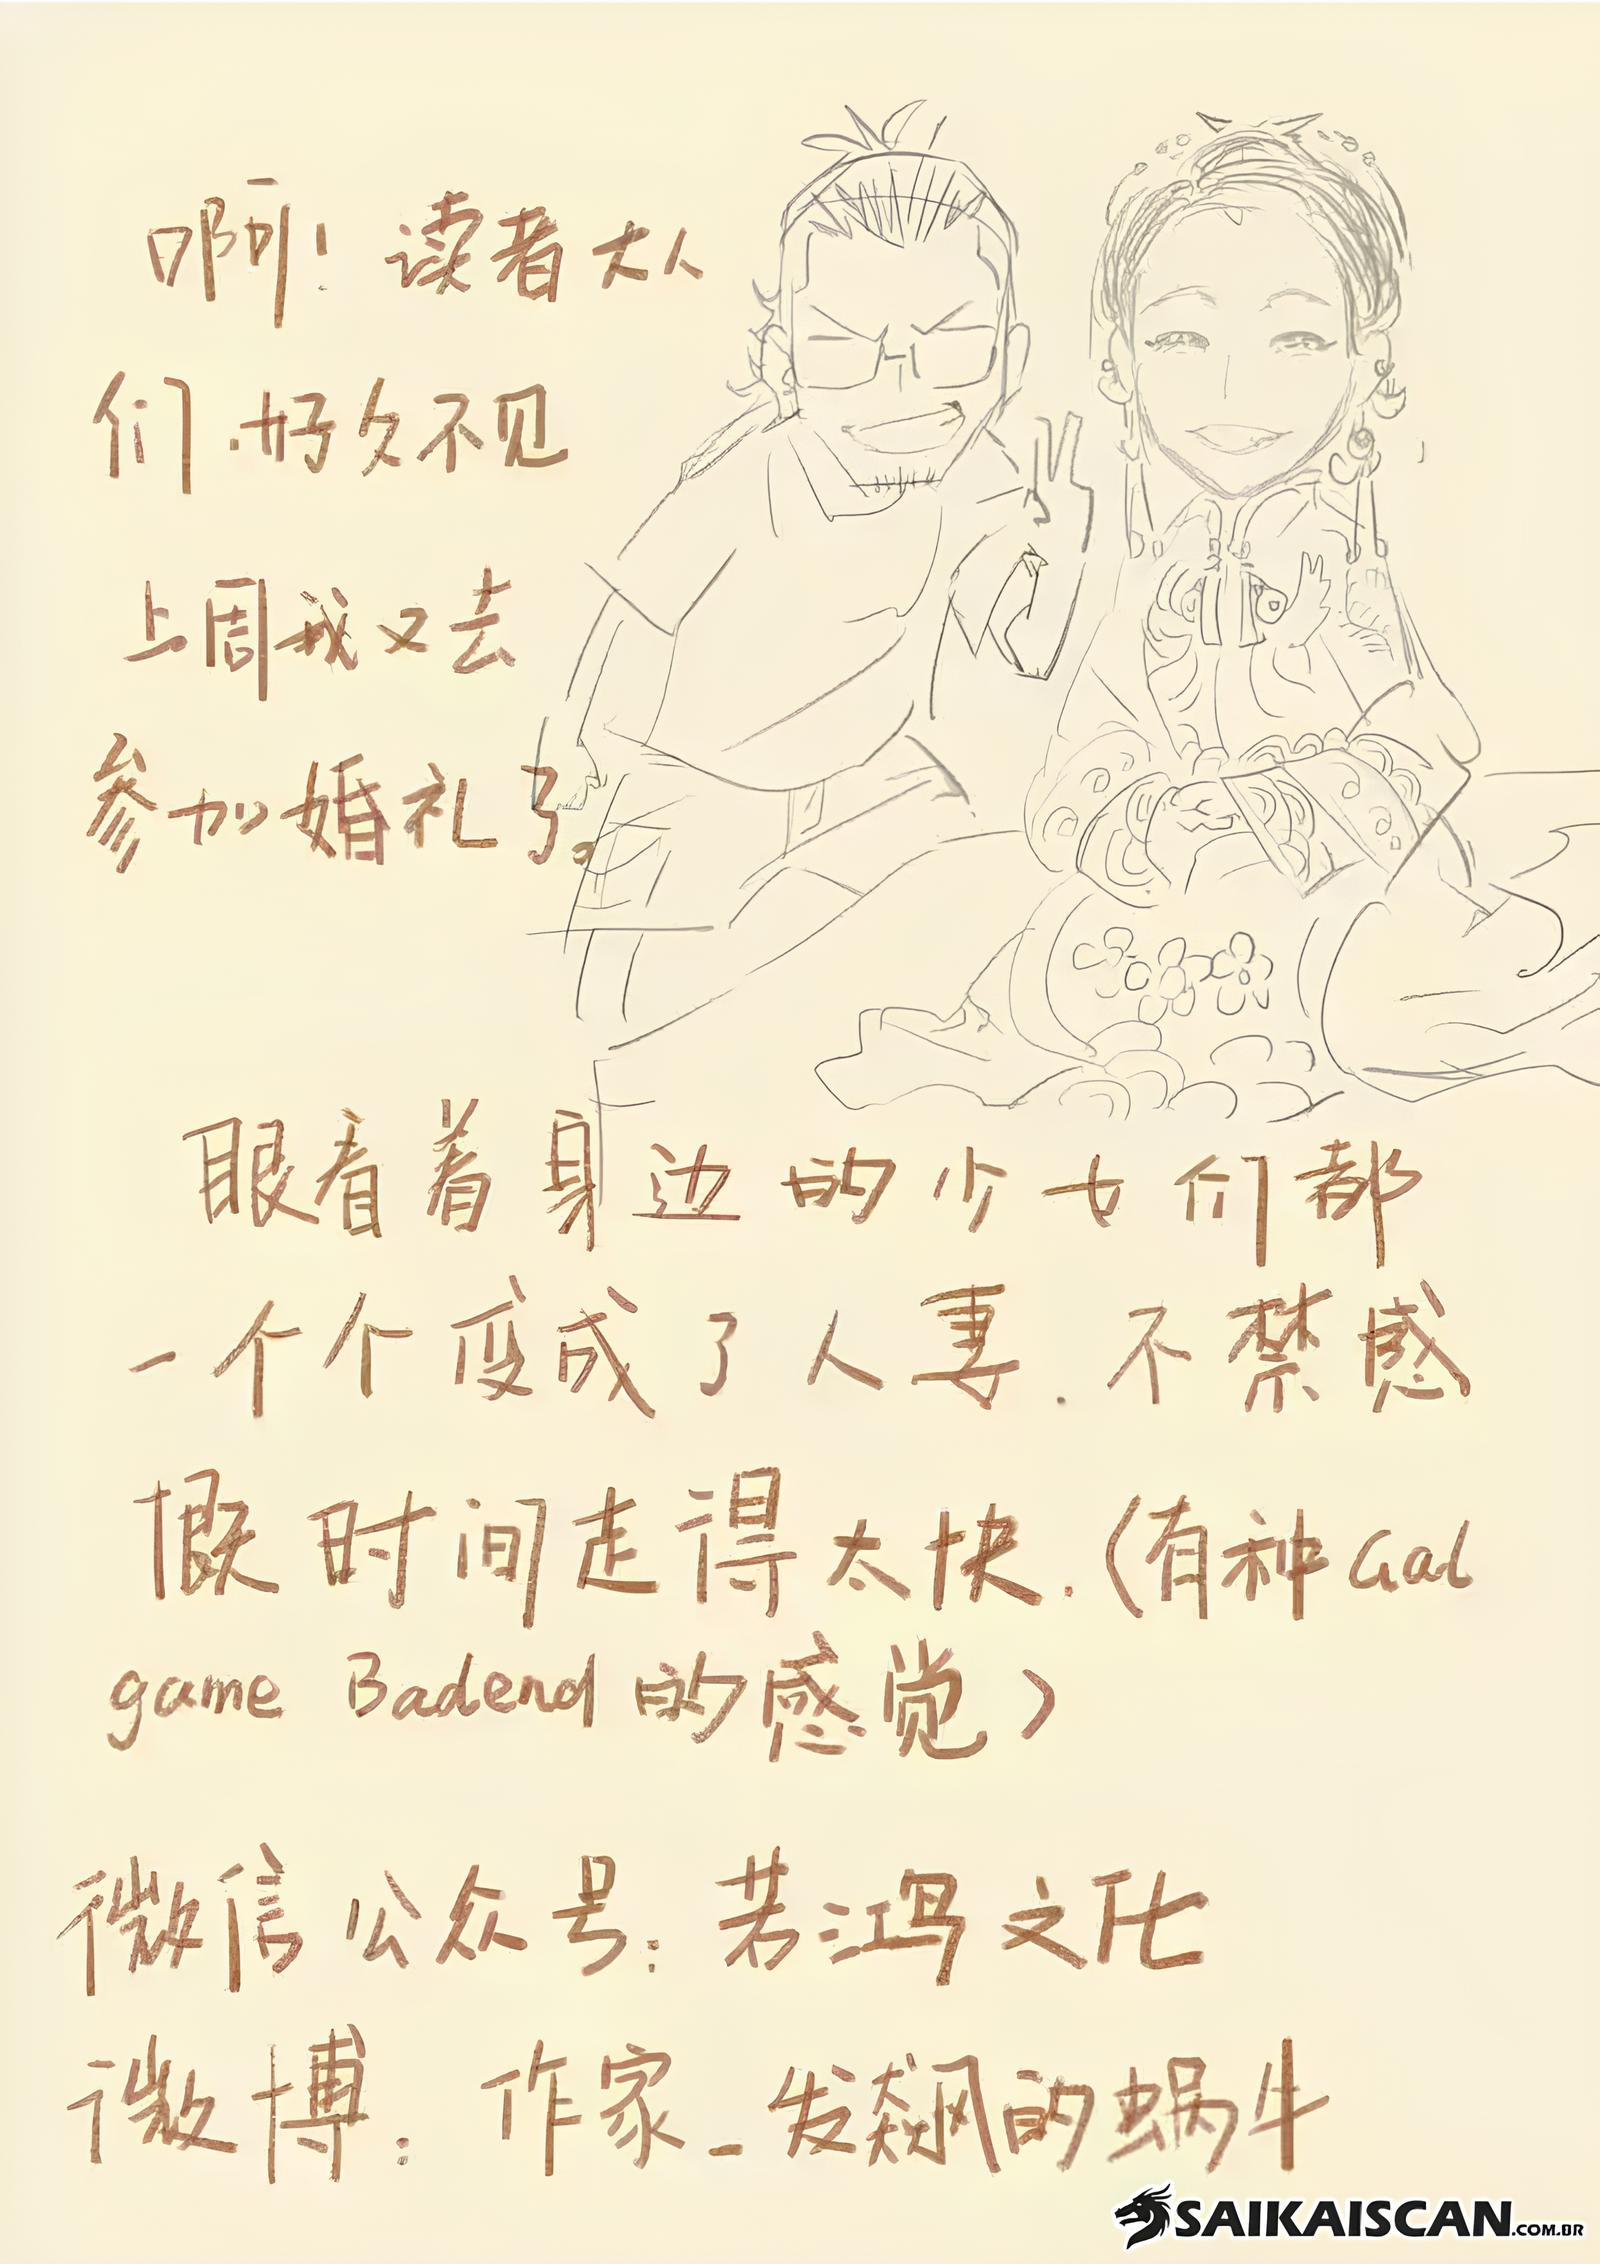 啊！读者大人
们.好久不见
上周我又去
参加婚礼了。
眼看着身边的少女们都
一个个变成了人妻.不禁感
慨时间走得太快.(有种Gal
game Badend的感觉)
微信公众号:若鸿文化
微博:作家_发飙的蜗牛
SAIKAISCAN.COM.BR